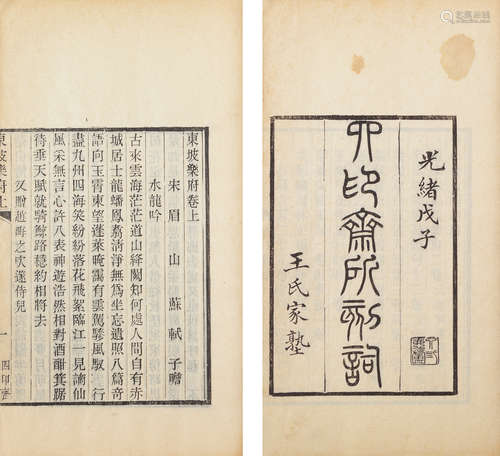 光緒戊子
四印齋所刻詞
王氏家塾
東坡樂府卷上
宋 眉 山 蘇 軾 子 瞻
水龍吟
古來雲海茫茫道山絳闕知何處人間自有赤
城居士龍蟠鳳翥清淨無爲坐忘遺照八篇奇
語向玉霄東望蓬萊晻靄有雲駕驂風馭 行
盡九州四海笑紛紛落花飛絮臨江一見謫仙
風采無言心許八表神遊浩然相對酒酣箕踞
待垂天賦就騎鯨路穩約相將去
又贈趙晦之吹篴侍兒
一